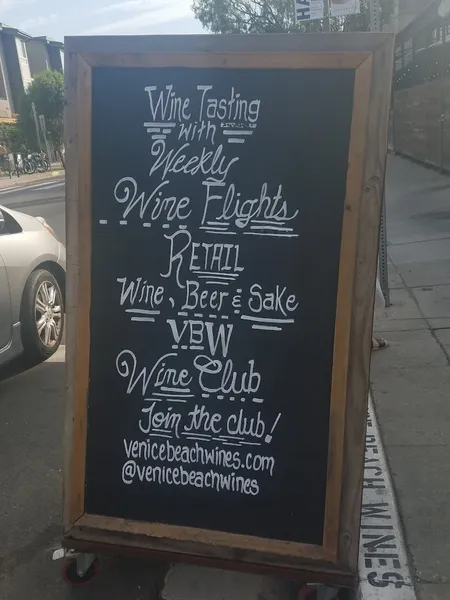 Wine Tasting
with
Weekly
Wine Flights
RETAIL
Wine, Beer & Sake
VBW
Wine Club
Join the club!
venicebeachwines.com
@venicebeachwines
BEACH WINES
HA